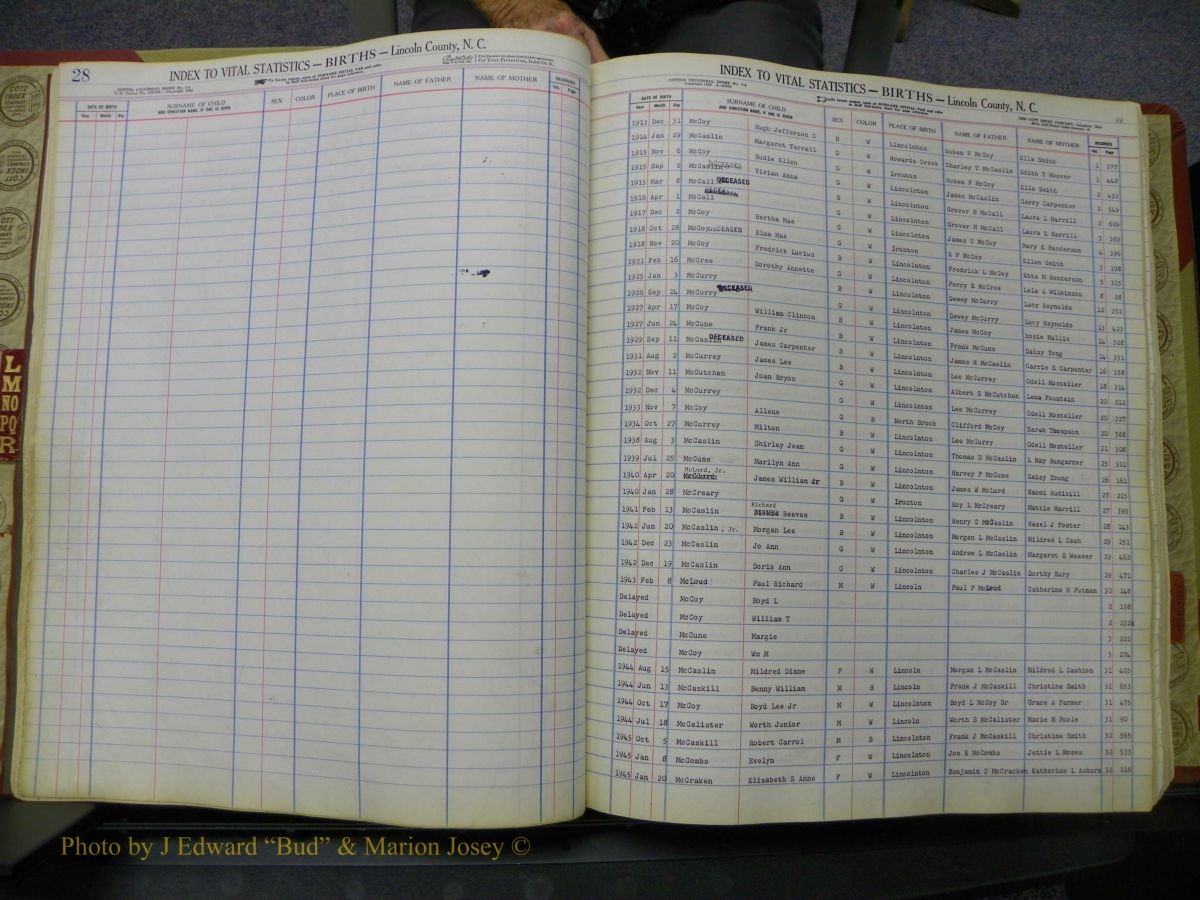 28
INDEX TO VITAL STATISTICS — BIRTHS — Lincoln County, N. C.
DATE OF BIRTH SURNAME OF CHILD AND CHRISTIAN NAME, IF ONE IS GIVEN SEX COLOR PLACE OF BIRTH NAME OF FATHER NAME OF MOTHER RECORDED
Year Month Day Vol. Page
29
INDEX TO VITAL STATISTICS — BIRTHS — Lincoln County, N. C.
DATE OF BIRTH SURNAME OF CHILD AND CHRISTIAN NAME, IF ONE IS GIVEN SEX COLOR PLACE OF BIRTH NAME OF FATHER NAME OF MOTHER RECORDED
Year Month Day Vol. Page
1913 Dec 31 McCoy Hugh Jefferson C B W Lincolnton Ruben F McCoy Ella Smith 1 377
1914 Jan 29 McCaslin Margaret Terrell G W Howards Creek Charley T McCaslin Edith T Hoover 1 448
1915 Nov 6 McCoy Sudie Ellen G W Ironton Ruben F McCoy Ella Smith 2 432
1915 Sep 2 McCaslin DECEASED Vivian Anna G W Lincolnton James McCaslin Carry Carpenter 2 549
1915 Mar 8 McCall DECEASED B W Lincolnton Grover H McCall Laura L Harrill 2 609
1916 Apr 1 McCall DECEASED G W Lincolnton Grover H McCall Laura L Harrill 3 369
1917 Dec 2 McCoy Bertha Mae G W Lincolnton James G McCoy Mary K Henderson 4 396
1918 Oct 28 McCoy DECEASED Elma Mae G W Ironton R F McCoy Ellen Smith 5 198
1918 Nov 20 McCoy Fredrick Lucius B W Lincolnton Fredrick L McCoy Etta M Henderson 5 315
1921 Feb 16 McCree Dorothy Annette G W Lincolnton Perry E McCree Lela A Wilkinson 8 28
1925 Jan 3 McCurry B W Lincolnton Dewey McCurry Lucy Reynolds 12 352
1926 Sep 24 McCurry DECEASED G W Lincolnton Dewey McCurry Lucy Reynolds 13 423
1927 Apr 17 McCoy William Clinton B W Lincolnton James McCoy Rosie Mullis 14 328
1927 Jun 24 McCune Frank Jr B W Lincolnton Frank McCune Daisy Yong 14 351
1929 Sep 11 McCaslin DECEASED James Carpenter B W Lincolnton James H McCaslin Carrie E Carpenter 16 358
1931 Aug 2 McCurrey James Lee B W Lincolnton Lee McCurrey Odell Mosteller 18 314
1932 Nov 11 McCutchen Joan Bryon G W Lincolnton Albert S McCutchen Lena Fountain 20 212
1932 Dec 4 McCurrey G W Lincolnton Lee McCurrey Odell Mosteller 20 327
1933 Nov 7 McCoy Allene G B North Brook Clifford McCoy Sarah Thompson 20 568
1934 Oct 27 McCurrey Milton B W Lincolnton Lee McCurry Odell Mosteller 21 308
1938 Aug 3 McCaslin Shirley Jean G W Lincolnton Thomas D McCaslin L May Bumgarner 25 321
1939 Jul 25 McCune Marilyn Ann G W Lincolnton Harvey F McCune Daisy Young 26 161
1940 Apr 20 McLurd, Jr. James William Jr B W Lincolnton James W McLurd Naomi Rudisill 27 215
1940 Jan 28 McCreary G W Ironton Roy L McCreary Mattie Harrill 27 395
1941 Feb 13 McCaslin Richard Reeves B W Lincolnton Henry C McCaslin Hazel J Foster 28 143
1942 Jun 20 McCaslin, Jr. Morgan Lee B W Lincolnton Morgan L McCaslin Mildred L Cash 29 251
1942 Dec 23 McCaslin Jo Ann G W Lincolnton Andrew L McCaslin Margaret E Weaver 29 462
1942 Dec 19 McCaslin Doris Ann G W Lincolnton Charles J McCaslin Dorthy Bury 29 471
1943 Feb 8 McLoud Paul Richard M W Lincoln Paul P McLoud Catherine H Putman 30 148
Delayed McCoy Boyd L 2 158
Delayed McCoy William T 2 232A
Delayed McCune Margie 3 222
Delayed McCoy Wm M 3 274
1944 Aug 15 McCaslin Mildred Diane F W Lincoln Morgan L McCaslin Mildred L Cashion 31 403
1944 Jun 13 McCaskill Benny William M B Lincoln Frank J McCaskill Christine Smith 31 653
1944 Oct 17 McCoy Boyd Lee Jr M W Lincolnton Boyd L McCoy Sr Grace A Farmer 31 475
1944 Jul 18 McCalister Worth Junior M W Lincoln Worth S McCalister Macie M Poole 31 90
1945 Oct 5 McCaskill Robert Carrol M B Lincolnton Frank J McCaskill Christine Smith 32 565
1945 Jan 8 McCombs Evelyn F W Lincolnton Joe R McCombs Jettie L Moses 32 533
1945 Jan 20 McCraken Elizabeth S Anne F W Lincolnton Benjamin C McCracken Katherine L Asburn 32 116
L
M
NO
PQ
R
Photo by J Edward “Bud” & Marion Josey ©